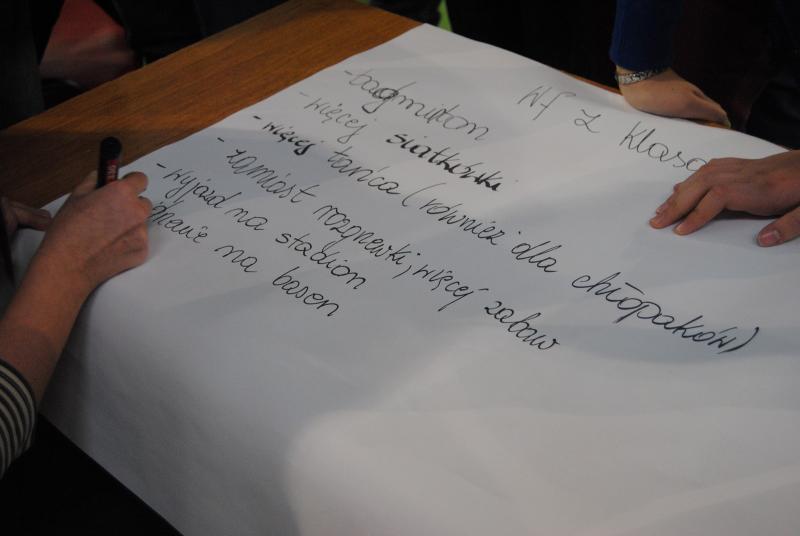 WF z klasą
- badminton
- więcej siatkówki
- więcej tańca (również dla chłopaków)
- zamiast rozgrzewki, więcej zabaw
- wyjazd na stadion
na basen